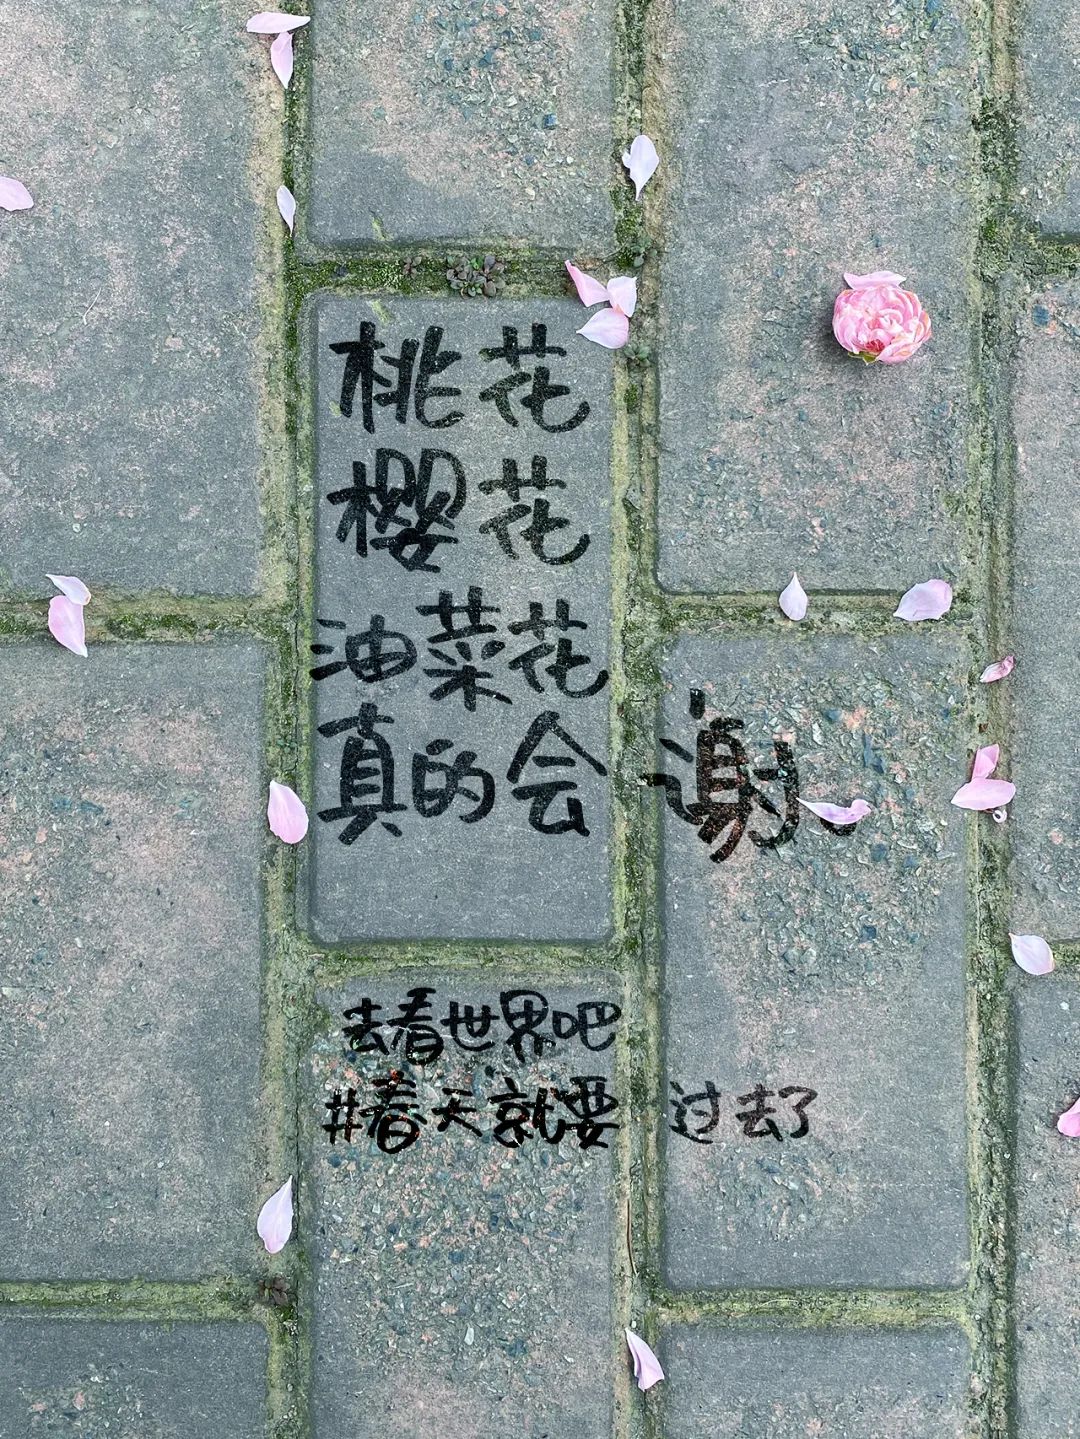 桃花
樱花
油菜花
真的会谢、
去看世界吧
#春天就要过去了